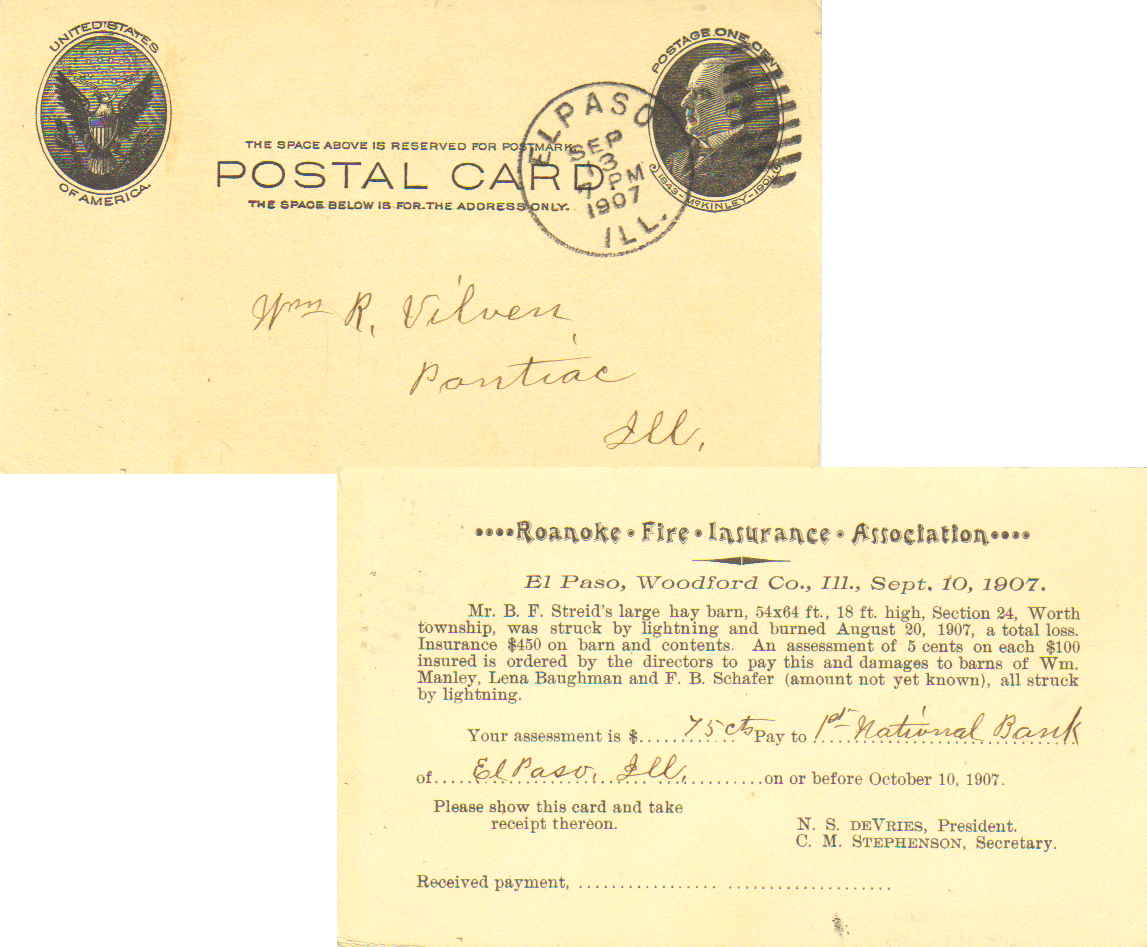 UNITED STATES
OF AMERICA.
POSTAGE ONE CENT
1843-McKINLEY-1901
THE SPACE ABOVE IS RESERVED FOR POSTMARK.
POSTAL CARD
THE SPACE BELOW IS FOR THE ADDRESS ONLY.
EL PASO
SEP
13
7 PM
1907
ILL.
Wm R. Vilven,
Pontiac
Ill,
Roanoke • Fire • Insurance • Association
El Paso, Woodford Co., Ill., Sept. 10, 1907.
Mr. B. F. Streid's large hay barn, 54x64 ft., 18 ft. high, Section 24, Worth
township, was struck by lightning and burned August 20, 1907, a total loss.
Insurance $450 on barn and contents. An assessment of 5 cents on each $100
insured is ordered by the directors to pay this and damages to barns of Wm.
Manley, Lena Baughman and F. B. Schafer (amount not yet known), all struck
by lightning.
Your assessment is $ 75 cts Pay to 1st National Bank
of El Paso, Ill, on or before October 10, 1907.
Please show this card and take
receipt thereon.
N. S. DEVRIES, President.
C. M. STEPHENSON, Secretary.
Received payment,